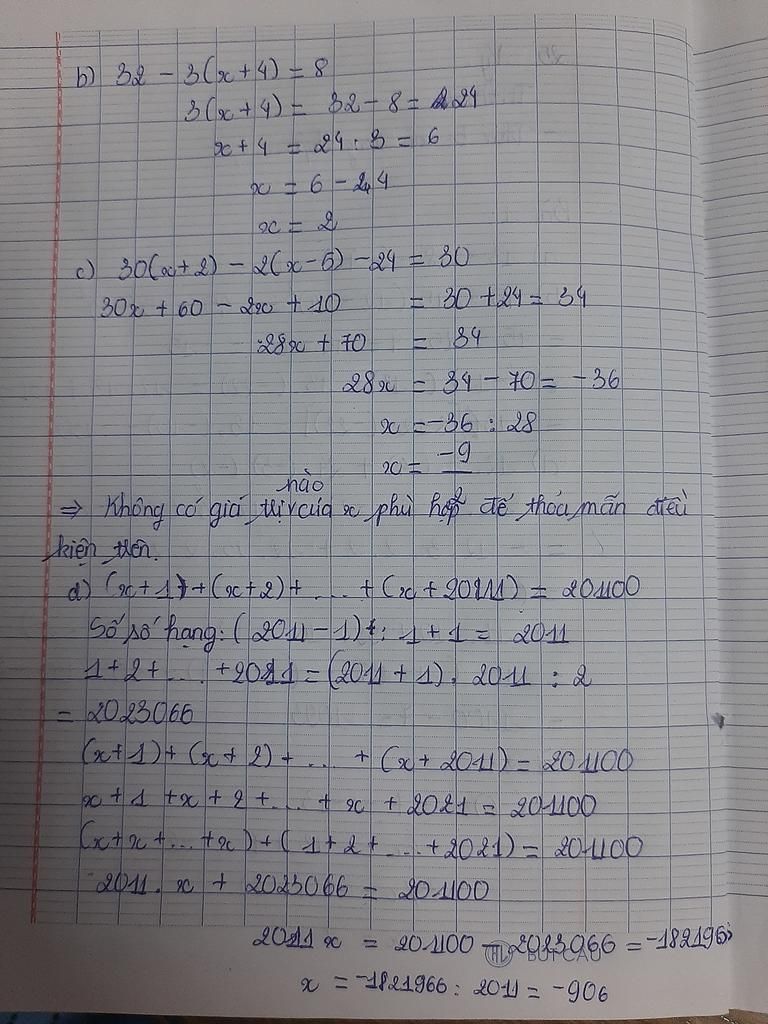 b) 32 - 3(x + 4) = 8
3(x + 4) = 32 - 8 = 24
x + 4 = 24 : 3 = 6
x = 6 - 4
x = 2
c) 30(x + 2) - 2(x - 5) - 24 = 30
30x + 60 - 2x + 10 = 30 + 24 = 34
28x + 70 = 34
28x = 34 - 70 = -36
x = -36 : 28
x = -9
nào
⇒ Không có giá trị của x phù hợp để thỏa mãn điều
kiện trên.
d) (x + 1) + (x + 2) + ... + (x + 2011) = 201100
Số số hạng: (2011 - 1) : 1 + 1 = 2011
1 + 2 + ... + 2011 = (2011 + 1) . 2011 : 2
= 2023066
(x + 1) + (x + 2) + ... + (x + 2011) = 201100
x + 1 + x + 2 + ... + x + 2021 = 201100
(x + x + ... + x) + (1 + 2 + ... + 2021) = 201100
2011 . x + 2023066 = 201100
2011 x = 201100 - 2023066 = -1821966
x = -1821966 : 2011 = -906